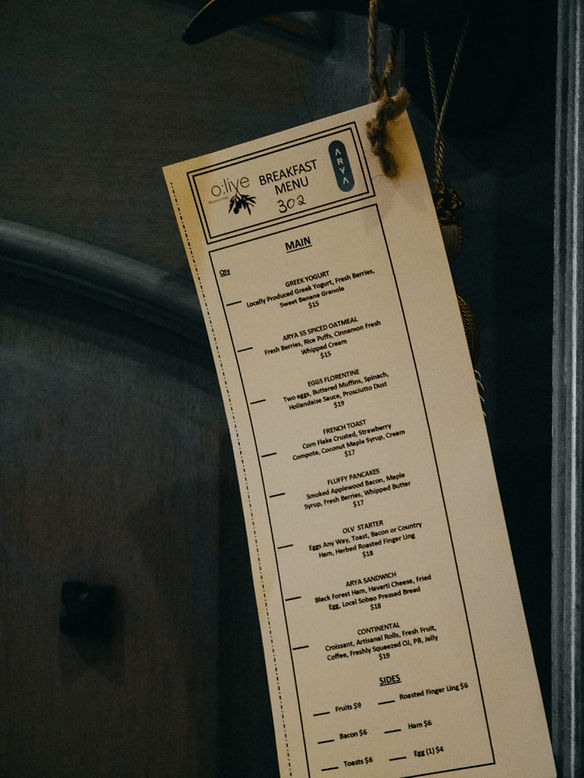 o:live
BREAKFAST
MENU
302
ARYA
MAIN
Qty
GREEK YOGURT
Locally Produced Greek Yogurt, Fresh Berries,
Sweet Banana Granola
$15
ARYA SS SPICED OATMEAL
Fresh Berries, Rice Puffs, Cinnamon Fresh
Whipped Cream
$15
EGGS FLORENTINE
Two eggs, Buttered Muffins, Spinach,
Hollandaise Sauce, Prosciutto Dust
$19
FRENCH TOAST
Corn Flake Crusted, Strawberry
Compote, Coconut Maple Syrup, Cream
$17
FLUFFY PANCAKES
Smoked Applewood Bacon, Maple
Syrup, Fresh Berries, Whipped Butter
$17
OLV STARTER
Eggs Any Way, Toast, Bacon or Country
Ham, Herbed Roasted Finger Ling
$18
ARYA SANDWICH
Black Forest Ham, Havarti Cheese, Fried
Egg, Local Sobao Pressed Bread
$18
CONTINENTAL
Croissant, Artisanal Rolls, Fresh Fruit,
Coffee, Freshly Squeezed OJ, PB, Jelly
$19
SIDES
Fruits $9
Roasted Finger Ling $6
Bacon $6
Ham $6
Toasts $6
Egg (1) $4